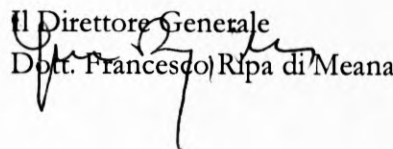 Il Direttore Generale
Dott. Francesco Ripa di Meana